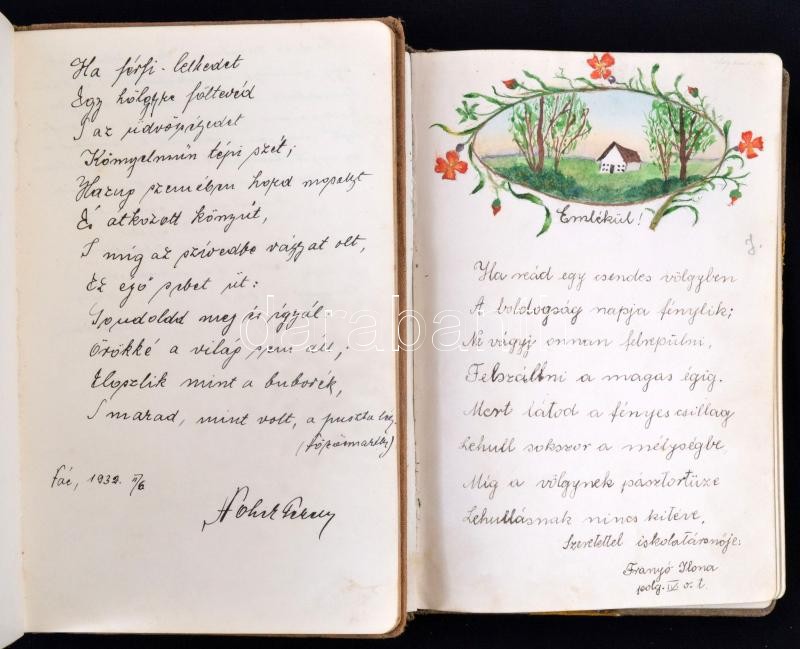 Ha férfi-lelkedet
Egy hölgyre föltevéd
S az üdvösségedet
Könnyelmün tépi szét;
Hazug szemében hord mosolyt
És átkozott könnyüt,
S míg az szívedbe vágyat olt,
Ez égő sebet üt:
Gondold meg és igyál:
Örökké a világ sem áll;
Eloszlik mint a buborék,
S marad, mint volt, a puszta lég.
(Vörösmarthy)
1932. II/6
Emlékül!
J.
Ha reád egy csendes völgyben
A boldogság napja fénylik;
Ne vágyj onnan felrepülni,
Felszállni a magas égig.
Mert látod a fényes csillag
Lehull sokszor a mélységbe,
Míg a völgynek pásztortüze
Lehullásnak nincs kitéve,
Szeretettel iskolatársnője:
Franyó Ilona
polg. IV. o. t.
darabanth